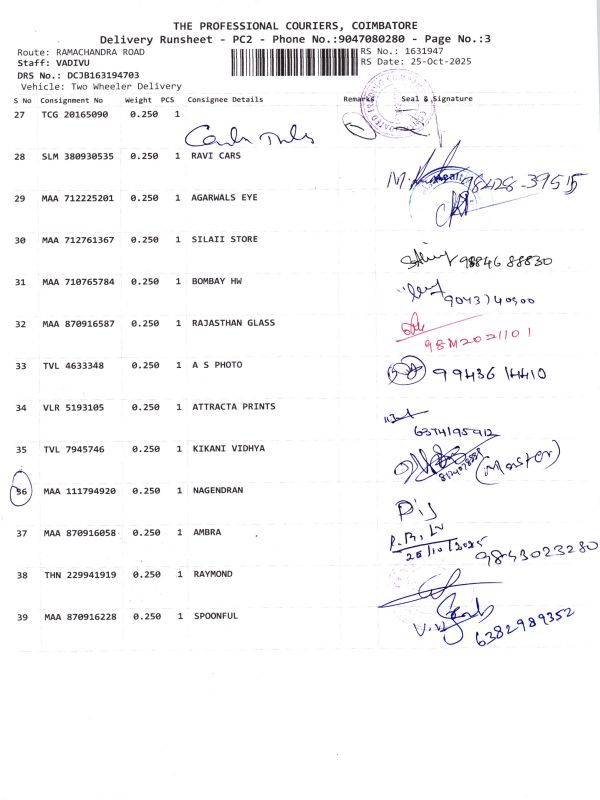 THE PROFESSIONAL COURIERS, COIMBATORE
Delivery Runsheet - PC2 - Phone No.:9047080280 - Page No.:3
Route: RAMACHANDRA ROAD RS No.: 1631947
Staff: VADIVU RS Date: 25-Oct-2025
DRS No.: DCJB163194703
Vehicle: Two Wheeler Delivery
S No Consignment No Weight PCS Consignee Details Remarks Seal & Signature
27 TCG 20165090 0.250 1
28 SLM 380930535 0.250 1 RAVI CARS
98428-39515
29 MAA 712225201 0.250 1 AGARWALS EYE
30 MAA 712761367 0.250 1 SILAII STORE
98846 88830
31 MAA 710765784 0.250 1 BOMBAY HW
9043740500
32 MAA 870916587 0.250 1 RAJASTHAN GLASS
33 TVL 4633348 0.250 1 A S PHOTO
99436 14410
34 VLR 5193105 0.250 1 ATTRACTA PRINTS
6374195912
35 TVL 7945746 0.250 1 KIKANI VIDHYA
36 MAA 111794920 0.250 1 NAGENDRAN
37 MAA 870916058 0.250 1 AMBRA
25/10/2025 9843023280
38 THN 229941919 0.250 1 RAYMOND
39 MAA 870916228 0.250 1 SPOONFUL
6382989352